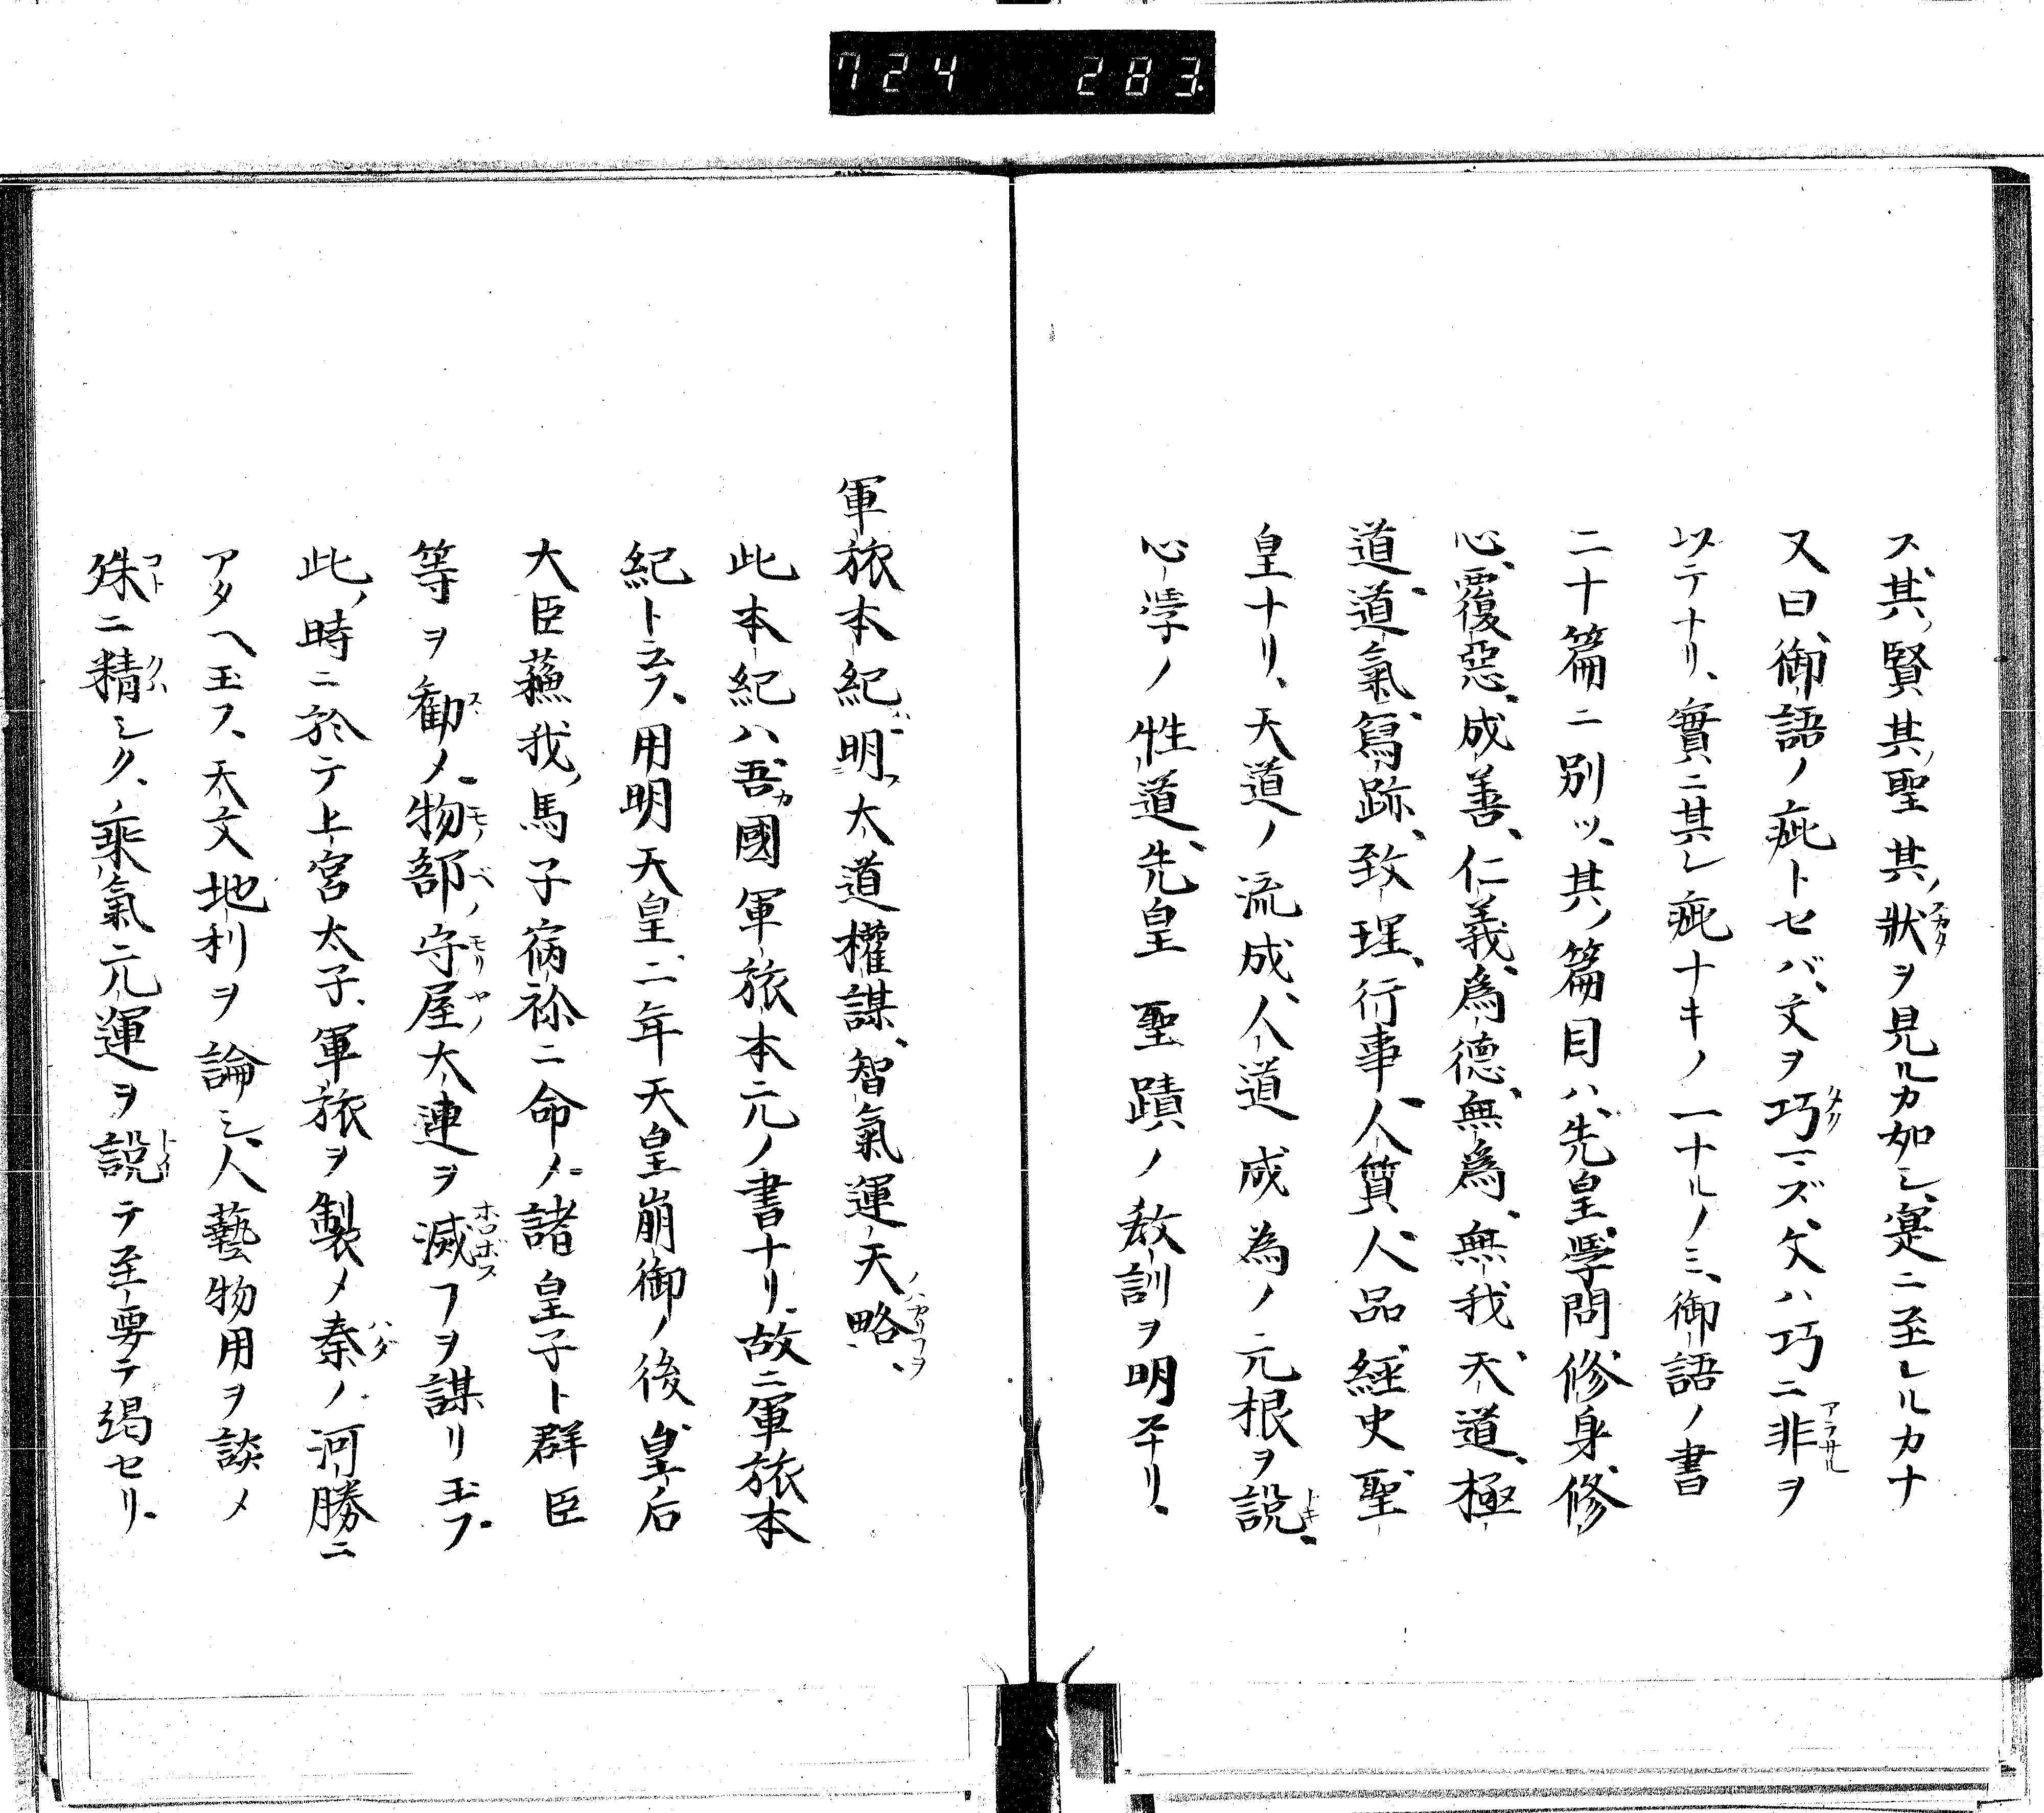 724 283
ス、其ノ賢其ノ聖其ノ狀ヲ見ルカ如シ、寔ニ至レルカナ
又曰、御語ノ疵トセバ、文ヲ巧マズ、文ハ巧ニ非ヲ
以テナリ、實ニ其レ疵ナキノ一ナルノミ、御語ノ書
二十篇ニ別ツ、其ノ篇目ハ、先皇、學問、修身、修
心、覆惡、成善、仁義、為德、無為、無我、天道、極
道、道氣、寫跡、致理、行事、人質、人品、經史、聖
皇ナリ、天道ノ流成、人道成為ノ元根ヲ説、
心學ノ性道、先皇聖蹟ノ敎訓ヲ明年リ、
軍旅本紀明ス太道權謀、智氣運天略、
此本紀ハ吾カ國軍旅本元ノ書ナリ、故ニ軍旅本
紀ト云フ、用明天皇二年天皇崩御ノ後皇后
大臣蘓我ノ馬子宿祢ニ命メ諸皇子ト群臣
等ヲ勸メ物部ノ守屋大連ヲ滅フヲ謀リ玉フ
此ノ時ニ於テ上宮太子、軍旅ヲ製メ秦ノ河勝ニ
アタヘ玉フ、天文地利ヲ論シ、人藝物用ヲ談メ
殊ニ精シク、乘氣元運ヲ説テ至要テ竭セリ、